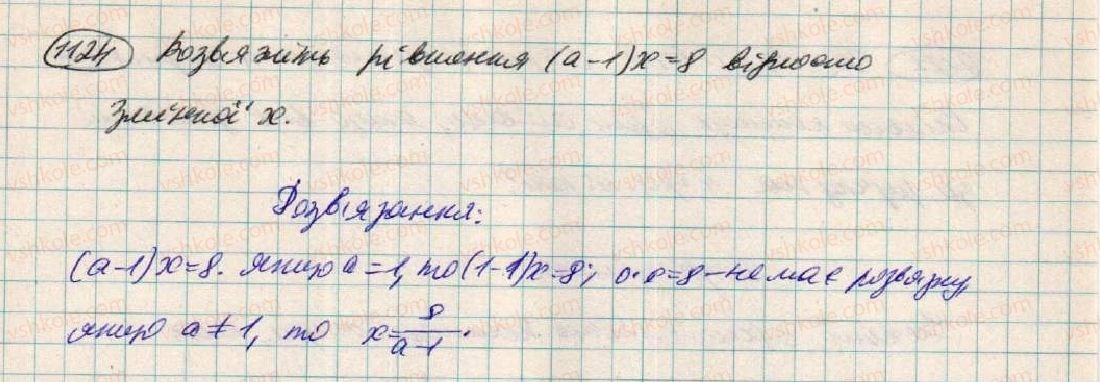 1124 Розв'яжіть рівняння (a-1)x=8 відносно
змінної x.
Розв'язання:
(a-1)x=8. якщо a=1, то (1-1)x=8; 0·x=8 - немає розв'язку,
якщо a≠1, то x=8/(a-1).